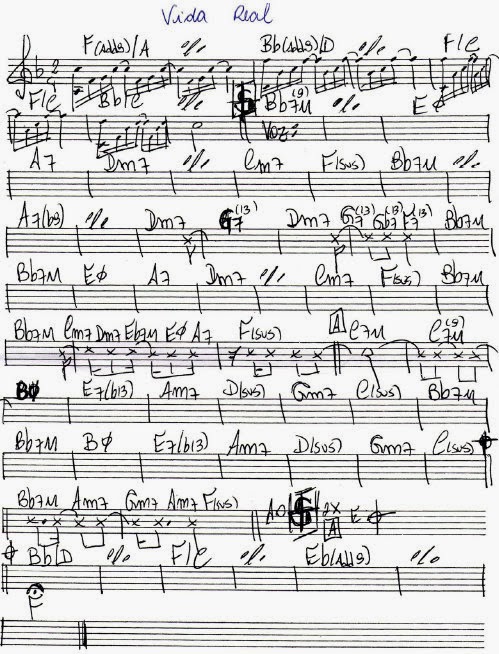 Vida Real
F(add9)/A ٪ Bb(add9)/D ٪ F/C
F/C Bb/C ٪ Bb7M(9) ٪ EØ
Voz:
A7 Dm7 ٪ Cm7 F(sus) Bb7M ٪
A7(b9) ٪ Dm7 G7(13) Dm7 G7(13) Gb7(13) F7(13) Bb7M
Bb7M EØ A7 Dm7 ٪ Cm7 F(sus) Bb7M
Bb7M Cm7 Dm7 Eb7M EØ A7 F(sus) A C7M C7M(9)
BØ E7(b13) Am7 D(sus) Gm7 C(sus) Bb7M
Bb7M BØ E7(b13) Am7 D(sus) Gm7 C(sus)
Bb7M Am7 Gm7 Am7 F(sus) AO 2X A E
Bb/D ٪ F/C ٪ Eb(add9) ٪
F